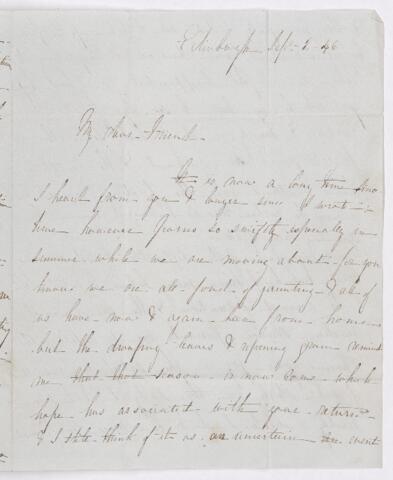 Edinburgh Sep. 2. 46
My dear Friend.
It is now a long time since
I heard from you & longer since I wrote
time however passes so swiftly especially in
summer while we are moving about - for you
know we are all fond of jaunting & all of
us have now & again been from home
but the drooping leaves & ripening grain remind
me that that season is now come which
hope has associated with your return
& I still think of it as an uncertain event